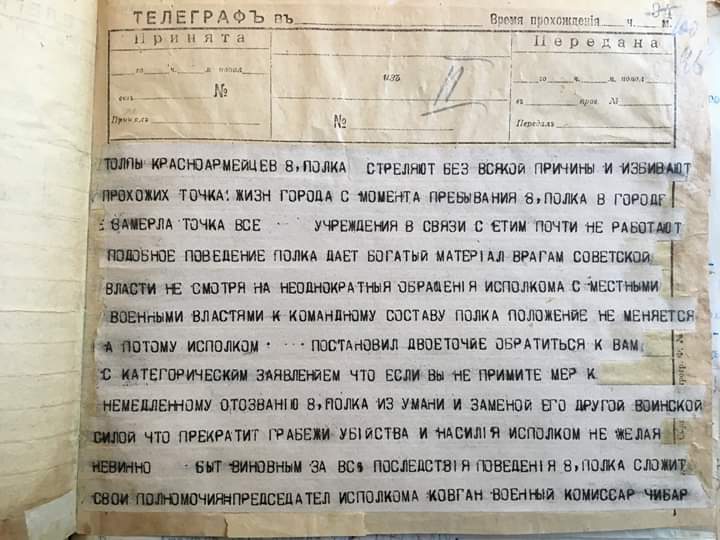 ТЕЛЕГРАФЪ въ
Время прохожденія ч. м.
Принята
Передана
го ч. м. попол.
изъ
II
го ч. м. попол.
№
въ пров. №
Принялъ
№
Передалъ
ТОЛПЫ КРАСНОАРМЕЙЦЕВ 8, ПОЛКА СТРЕЛЯЮТ БЕЗ ВСЯКОЙ ПРИЧИНЫ И ИЗБИВАЮТ
ПРОХОЖИХ ТОЧКА ЖИЗН ГОРОДА С МОМЕНТА ПРЕБЫВАНИЯ 8, ПОЛКА В ГОРОДЕ
ЗАМЕРЛА ТОЧКА ВСЕ УЧРЕЖДЕНИЯ В СВЯЗИ С ЕТИМ ПОЧТИ НЕ РАБОТАЮТ
ПОДОБНОЕ ПОВЕДЕНИЕ ПОЛКА ДАЕТ БОГАТЫЙ МАТЕРІАЛ ВРАГАМ СОВЕТСКОЙ
ВЛАСТИ НЕ СМОТРЯ НА НЕОДНОКРАТНЫЯ ОБРАЩЕНІЯ ИСПОЛКОМА С МЕСТНЫМИ
ВОЕННЫМИ ВЛАСТЯМИ К КОМАНДНОМУ СОСТАВУ ПОЛКА ПОЛОЖЕНИЕ НЕ МЕНЯЕТСЯ
А ПОТОМУ ИСПОЛКОМ ПОСТАНОВИЛ ДВОЕТОЧИЕ ОБРАТИТЬСЯ К ВАМ
С КАТЕГОРИЧЕСКИМ ЗАЯВЛЕНИЕМ ЧТО ЕСЛИ ВЫ НЕ ПРИМИТЕ МЕР К
НЕМЕДЛЕННОМУ ОТОЗВАНІЮ 8, ПОЛКА ИЗ УМАНИ И ЗАМЕНОЙ ЕГО ДРУГОЙ ВОИНСКОЙ
СИЛОЙ ЧТО ПРЕКРАТИТ ГРАБЕЖИ УБІЙСТВА И НАСИЛІЯ ИСПОЛКОМ НЕ ЖЕЛАЯ
НЕВИННО БЫТ ВИНОВНЫМ ЗА ВСЕ ПОСЛЕДСТВІЯ ПОВЕДЕНІЯ 8, ПОЛКА СЛОЖИТ
СВОИ ПОЛНОМОЧИЯ ПРЕДСЕДАТЕЛ ИСПОЛКОМА КОВГАН ВОЕННЫЙ КОМИССАР ЧИБАР